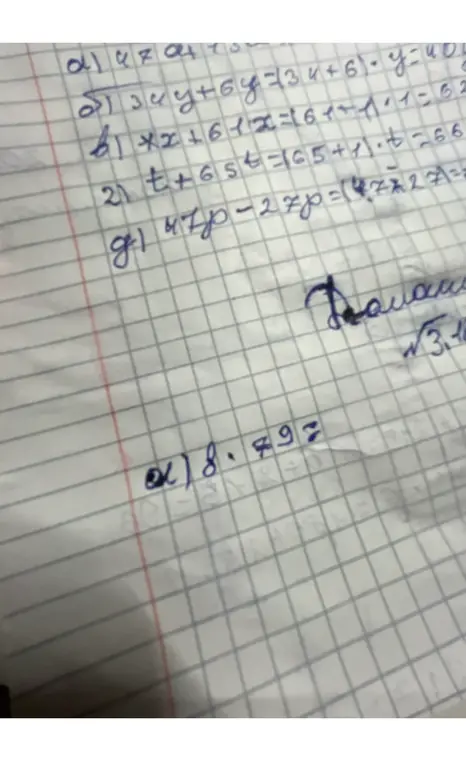 а) 47a
б) 34y+6y=(34+6)·y=40y
в) x+61x=(61+1)·1=62
г) t+65t=(65+1)·t=66
д) 47p-27p=(47-27)=
Домаш
√3.1
а) 8·797